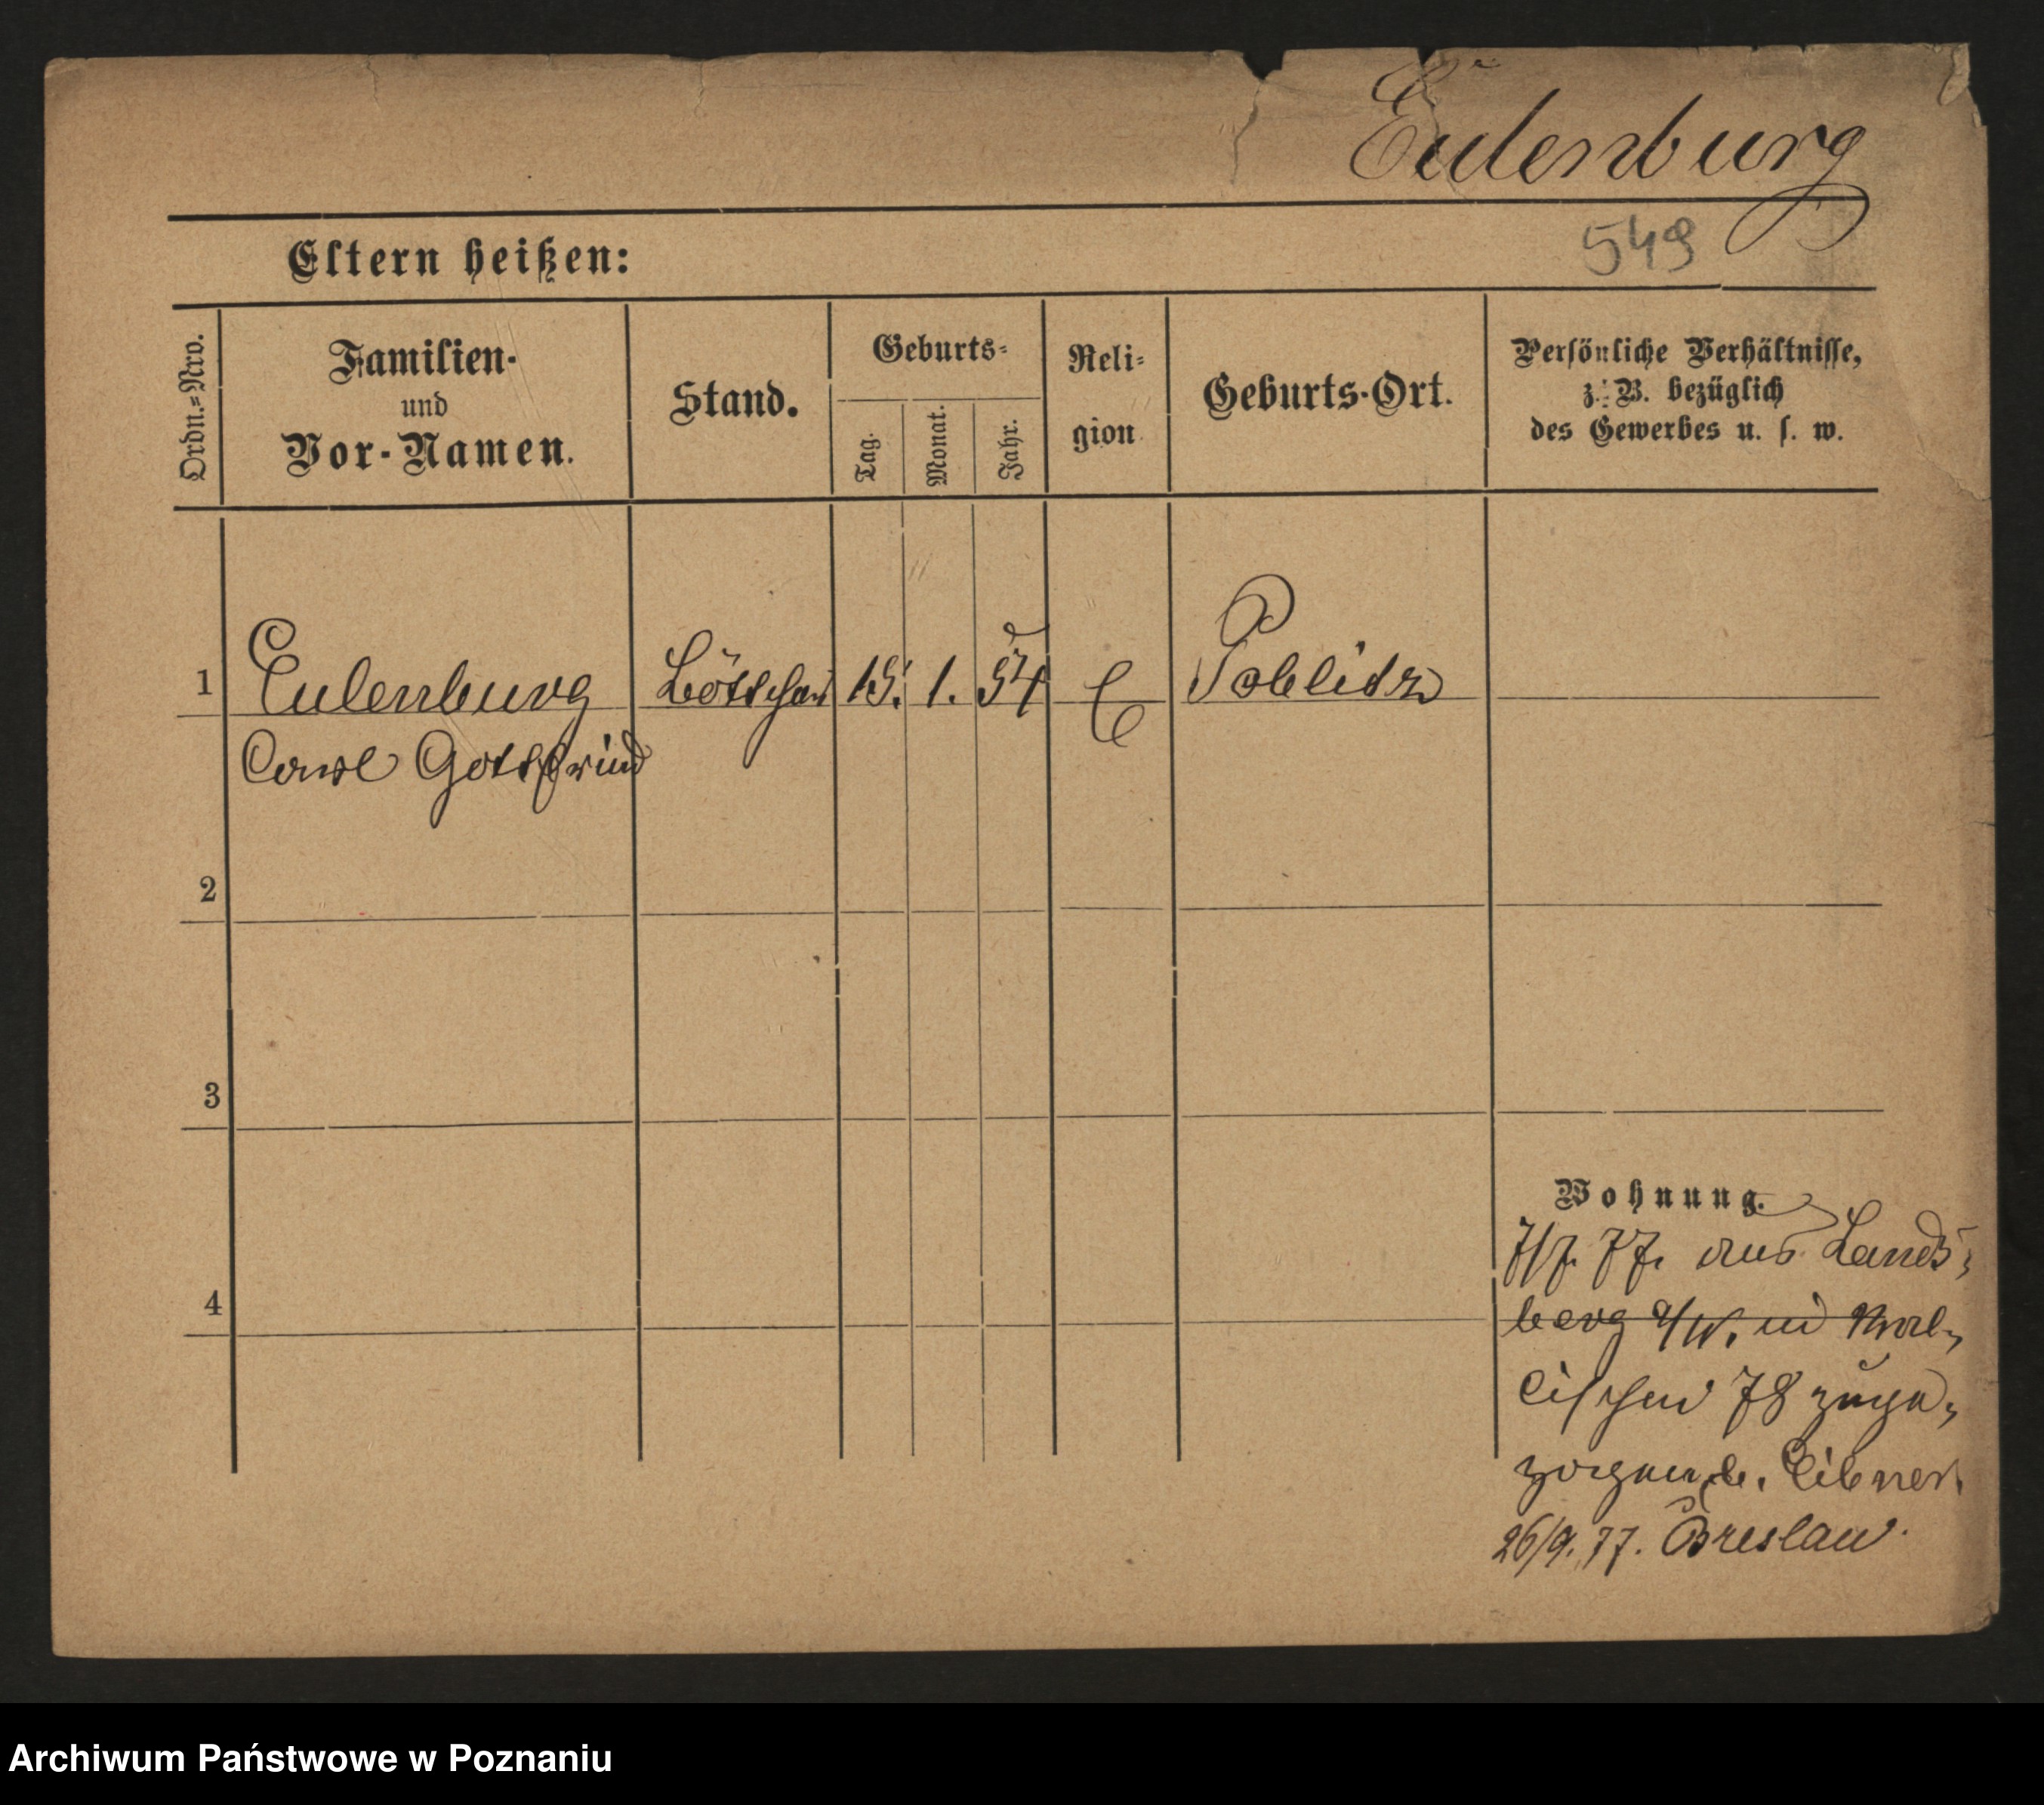 Eulenburg
549
Eltern heißen:
Ordn.=Nro.
Familien-
und
Vor-Namen.
Stand.
Geburts=
Tag.
Monat.
Jahr.
Reli=
gion
Geburts-Ort.
Persönliche Verhältnisse,
z. B. bezüglich
des Gewerbes u. s. w.
1 Eulenburg Böttcher 15. 1. 54 E
Carl Gottfried
2
3
4
Wohnung.
7/7. 77. aus Lands=
berg a/W. in Wal=
lischei 78 zuge=
zogen b.
26/9. 77. Breslau.
Archiwum Państwowe w Poznaniu